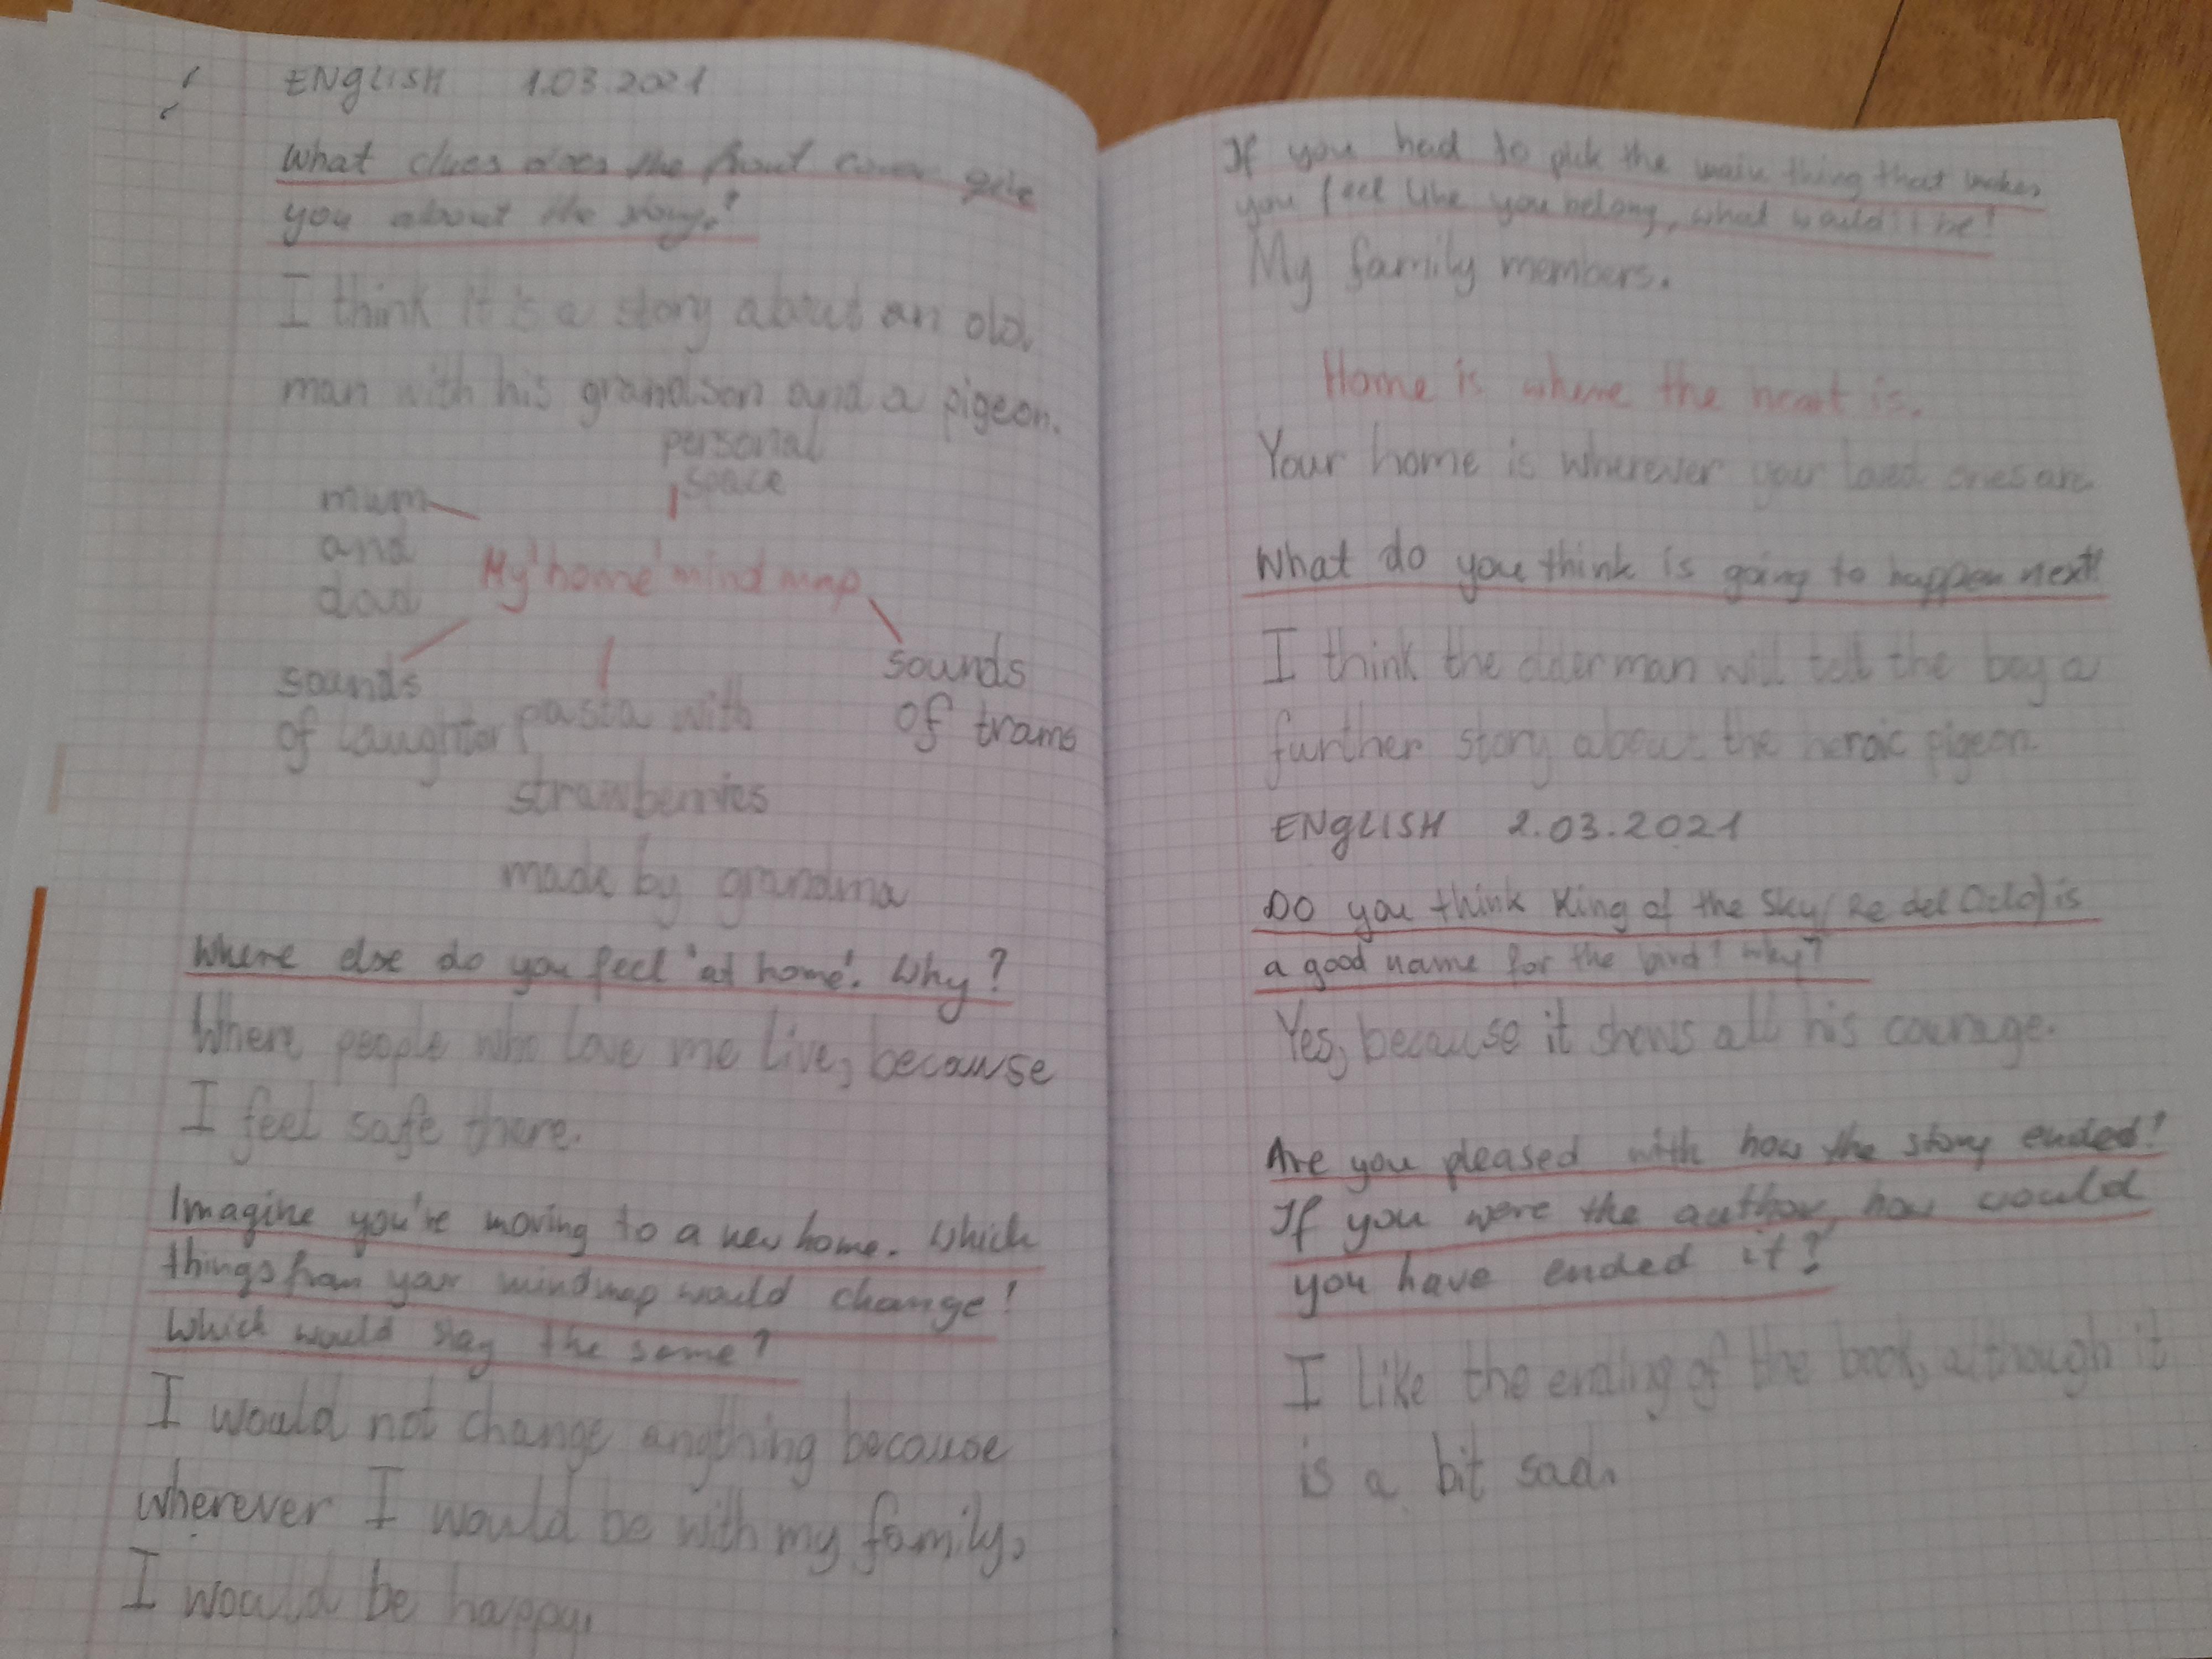 ENGLISH 1.03.2021
What clues does the front cover give
you about the story?
I think it's a story about an old
man with his grandson and a pigeon.
personal
space
mum
and
dad
My 'home' mind map
sounds
of laughter
pasta with
strawberries
made by grandma
sounds
of trams
Where else do you feel 'at home'. Why?
Where people who love me live, because
I feel safe there.
Imagine you're moving to a new home. Which
things from your mindmap would change?
Which would stay the same?
I would not change anything because
wherever I would be with my family,
I would be happy.
If you had to pick the main thing that makes
you feel like you belong, what would it be?
My family members.
Home is where the heart is.
Your home is wherever your loved ones are.
What do you think is going to happen next?
I think the older man will tell the boy a
further story about the heroic pigeon.
ENGLISH 2.03.2021
Do you think King of the Sky (Re del Cielo) is
a good name for the bird? Why?
Yes, because it shows all his courage.
Are you pleased with how the story ended?
If you were the author, how would
you have ended it?
I like the ending of the book, although it
is a bit sad.